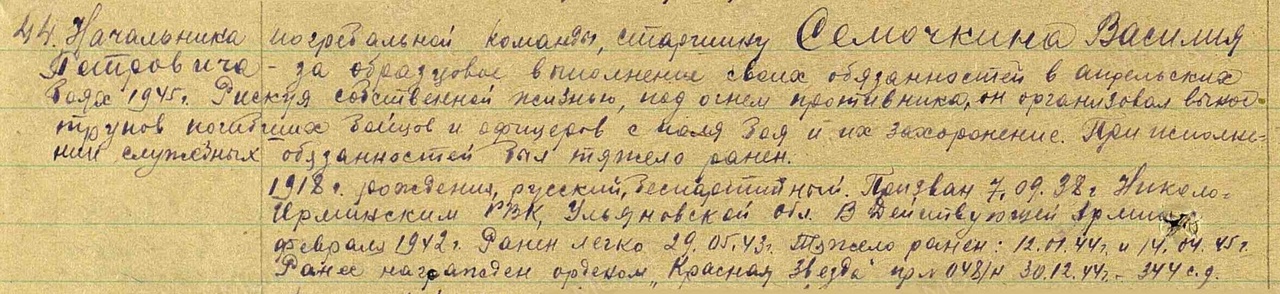 44. Начальника погребальной команды, старшину Семочкина Василия
Петровича – за образцовое выполнение своих обязанностей в апрельских
боях 1945г. Рискуя собственной жизнью, под огнем противника, он организовал вынос
трупов погибших бойцов и офицеров с поля боя и их захоронение. При исполне-
нии служебных обязанностей был тяжело ранен.
1918г. рождения, русский, беспартийный. Призван 7.09.38г Николо-
РВК, Ульяновской обл. В Действующей Армии с
февраля 1942г. Ранен легко 29.05.43г. Тяжело ранен: 12.01.44г. и 14.04.45г.
Ранее награжден орденом „Красная Звезда" пр. № 048/н 30.12.44г. – 344 с.д.